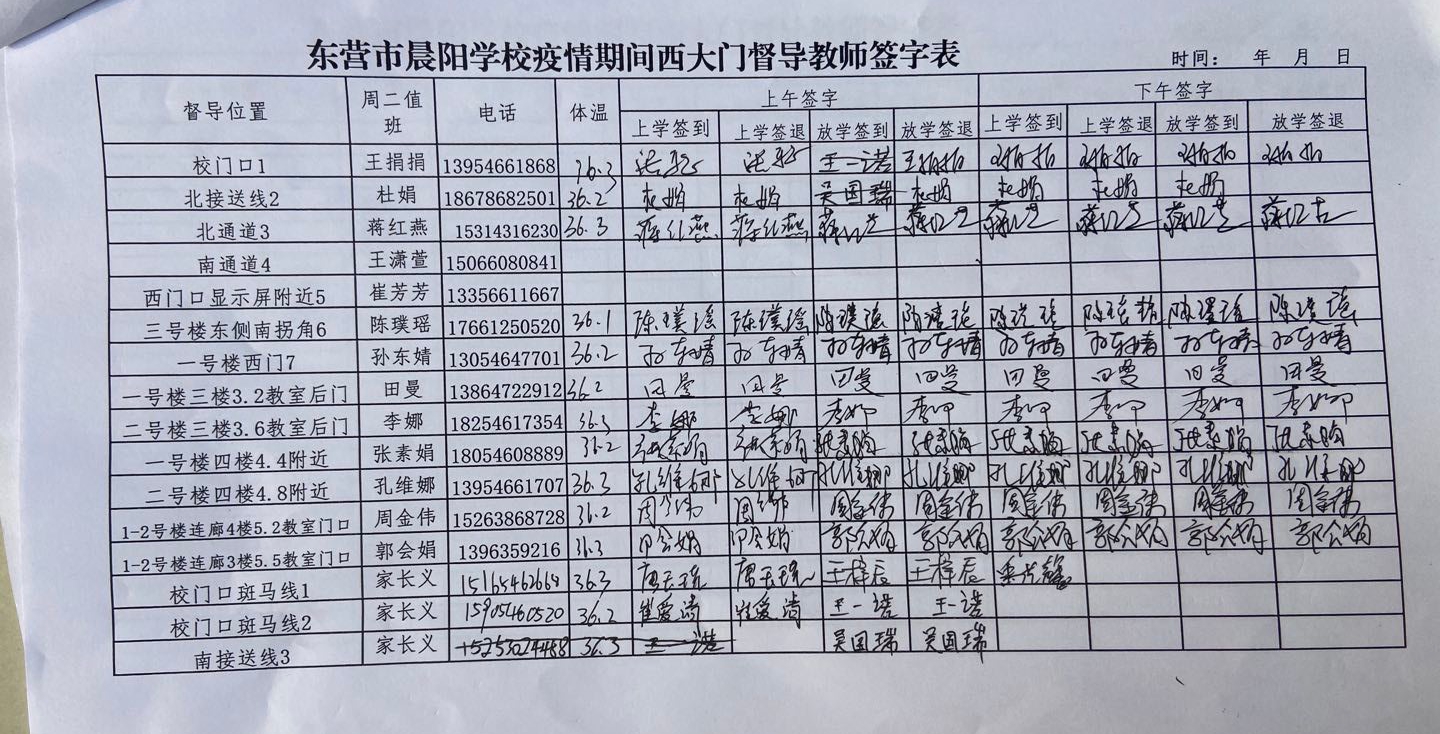 东营市晨阳学校疫情期间西大门督导教师签字表
时间： 年 月 日
督导位置 周二值班 电话 体温 上午签字 下午签字
上学签到 上学签退 放学签到 放学签退 上学签到 上学签退 放学签到 放学签退
校门口1 王捐捐 13954661868 36.3 王一诺 王捐捐
北接送线2 杜娟 18678682501 36.2 杜娟 杜娟 吴国瑞 杜娟 杜娟 杜娟 杜娟
北通道3 蒋红燕 15314316230 36.3 蒋红燕 蒋红燕
南通道4 王潇萱 15066080841
西门口显示屏附近5 崔芳芳 13356611667
三号楼东侧南拐角6 陈璞瑶 17661250520 36.1 陈璞瑶 陈璞瑶 陈璞瑶 陈璞瑶 陈璞瑶 陈璞瑶 陈璞瑶 陈璞瑶
一号楼西门7 孙东婧 13054647701 36.2 孙东婧 孙东婧 孙东婧 孙东婧 孙东婧 孙东婧 孙东婧 孙东婧
一号楼三楼3.2教室后门 田曼 13864722912 36.2 田曼 田曼 田曼 田曼 田曼 田曼 田曼 田曼
二号楼三楼3.6教室后门 李娜 18254617354 36.3 李娜 李娜 李娜 李娜 李娜 李娜 李娜 李娜
一号楼四楼4.4附近 张素娟 18054608889 36.2 张素娟 张素娟 张素娟 张素娟 张素娟 张素娟 张素娟 张素娟
二号楼四楼4.8附近 孔维娜 13954661707 36.3 孔维娜 孔维娜 孔维娜 孔维娜 孔维娜 孔维娜 孔维娜 孔维娜
1-2号楼连廊4楼5.2教室门口 周金伟 15263868728 36.2 周金伟 周金伟 周金伟 周金伟 周金伟 周金伟
1-2号楼连廊3楼5.5教室门口 郭会娟 1396359216 36.3 郭会娟 郭会娟 郭会娟 郭会娟 郭会娟 郭会娟 郭会娟 郭会娟
校门口斑马线1 家长义 15165462664 36.3 王梓辰 王梓辰
校门口斑马线2 家长义 15905460520 36.2 崔爱清 崔爱清 王一诺 王一诺
南接送线3 家长义 36.3 王一诺 吴国瑞 吴国瑞